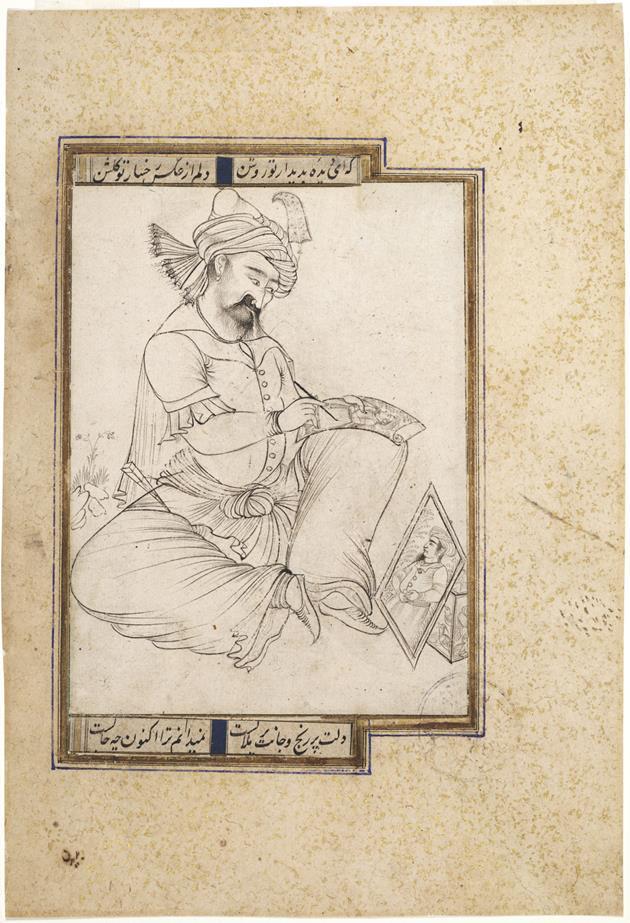 که ای دیده بدیدار تو روشن دلم از عکس رخسار تو گلشن
دلت پر رنج و جانت پر ملالست نمیدانم ترا اکنون چه حالست